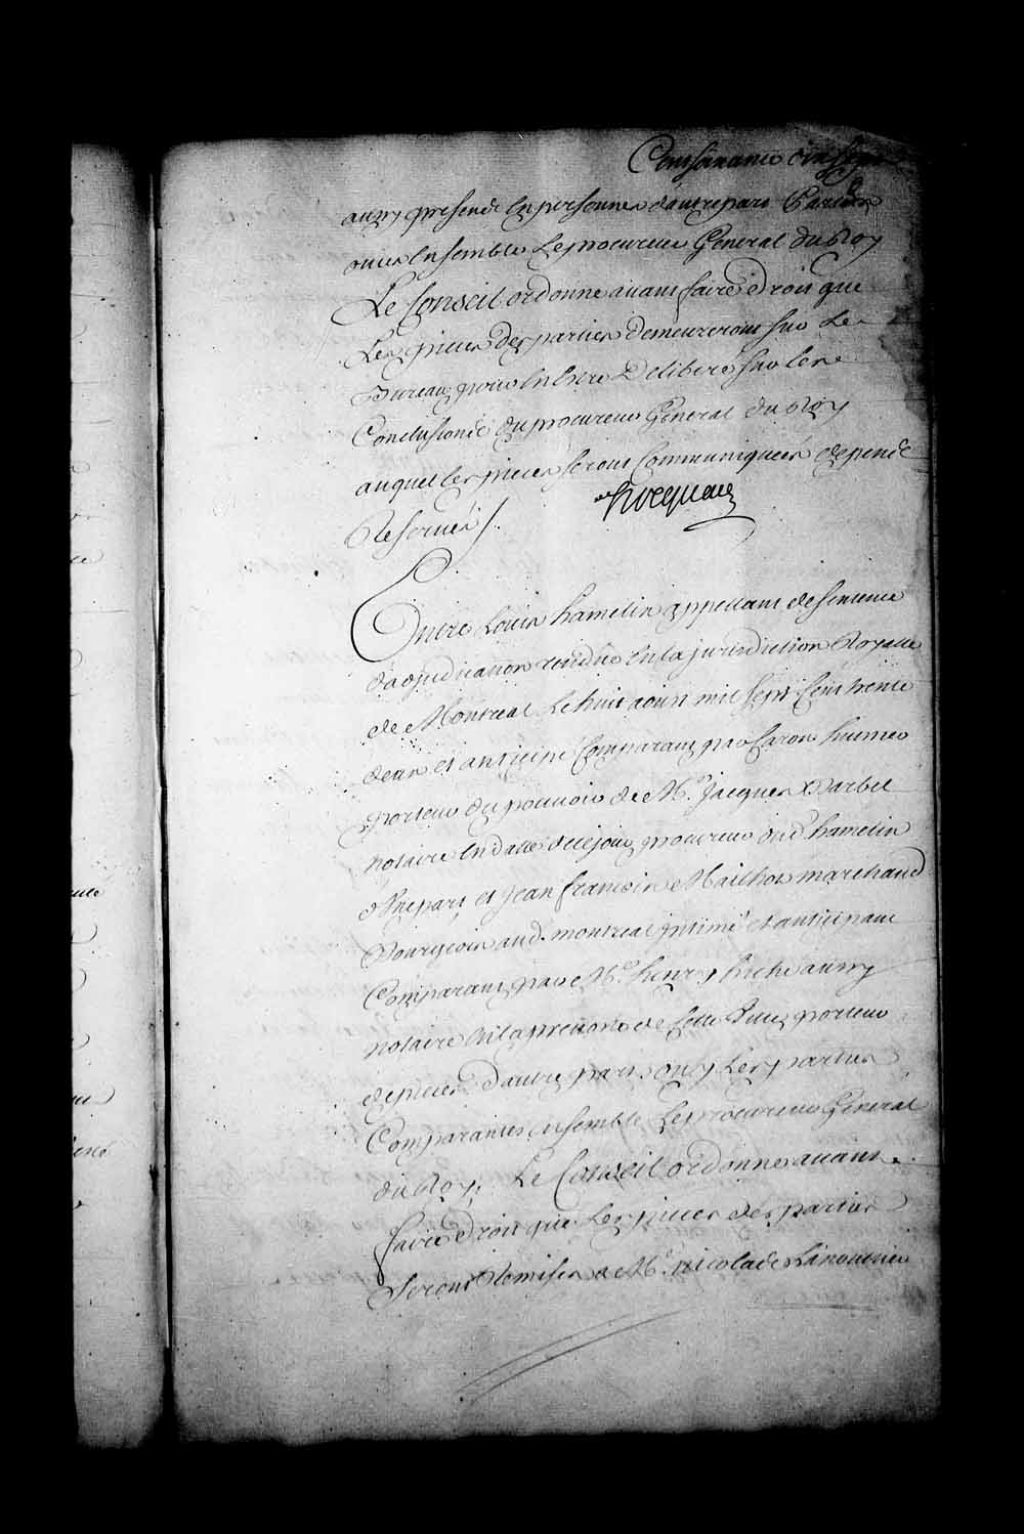 Cent soixante cinq
aussy presente en personne d'autre part Parties
ouies ensemble Le procureur General du Roy
Le Conseil ordonne avant faire droit que
Les pieces des parties demeureront sur Le
Bureau pour en estre Deliberé sur les
Conclusions du procureur General du Roy
auquel les pieces seront Communiquées depens
Reservés /.
hocquart
Entre Louis hamelin appellant de sentence
d'adjudication rendue en la jurisdiction Royalle
de Montreal le huit aoust mil sept Cent trente
deux et anticipé Comparant par
porteur du pouvoir de Me. Jacques Barbel
notaire en datte de ce jour procureur dud. hamelin
d'Une part et Jean francois Mailhot marchand
Bourgeois aud. montreal intimé et anticipant
Comparant par Me. henry hiche aussy
notaire en la prevosté de Cette Ville porteur
de pieces d'autre part, ouy Les parties
Comparantes ensemble Le procureur General
du Roy, Le Conseil ordonne avant
faire droit que Les pieces des parties
Seront Remises a Me. nicolas Lanoullier